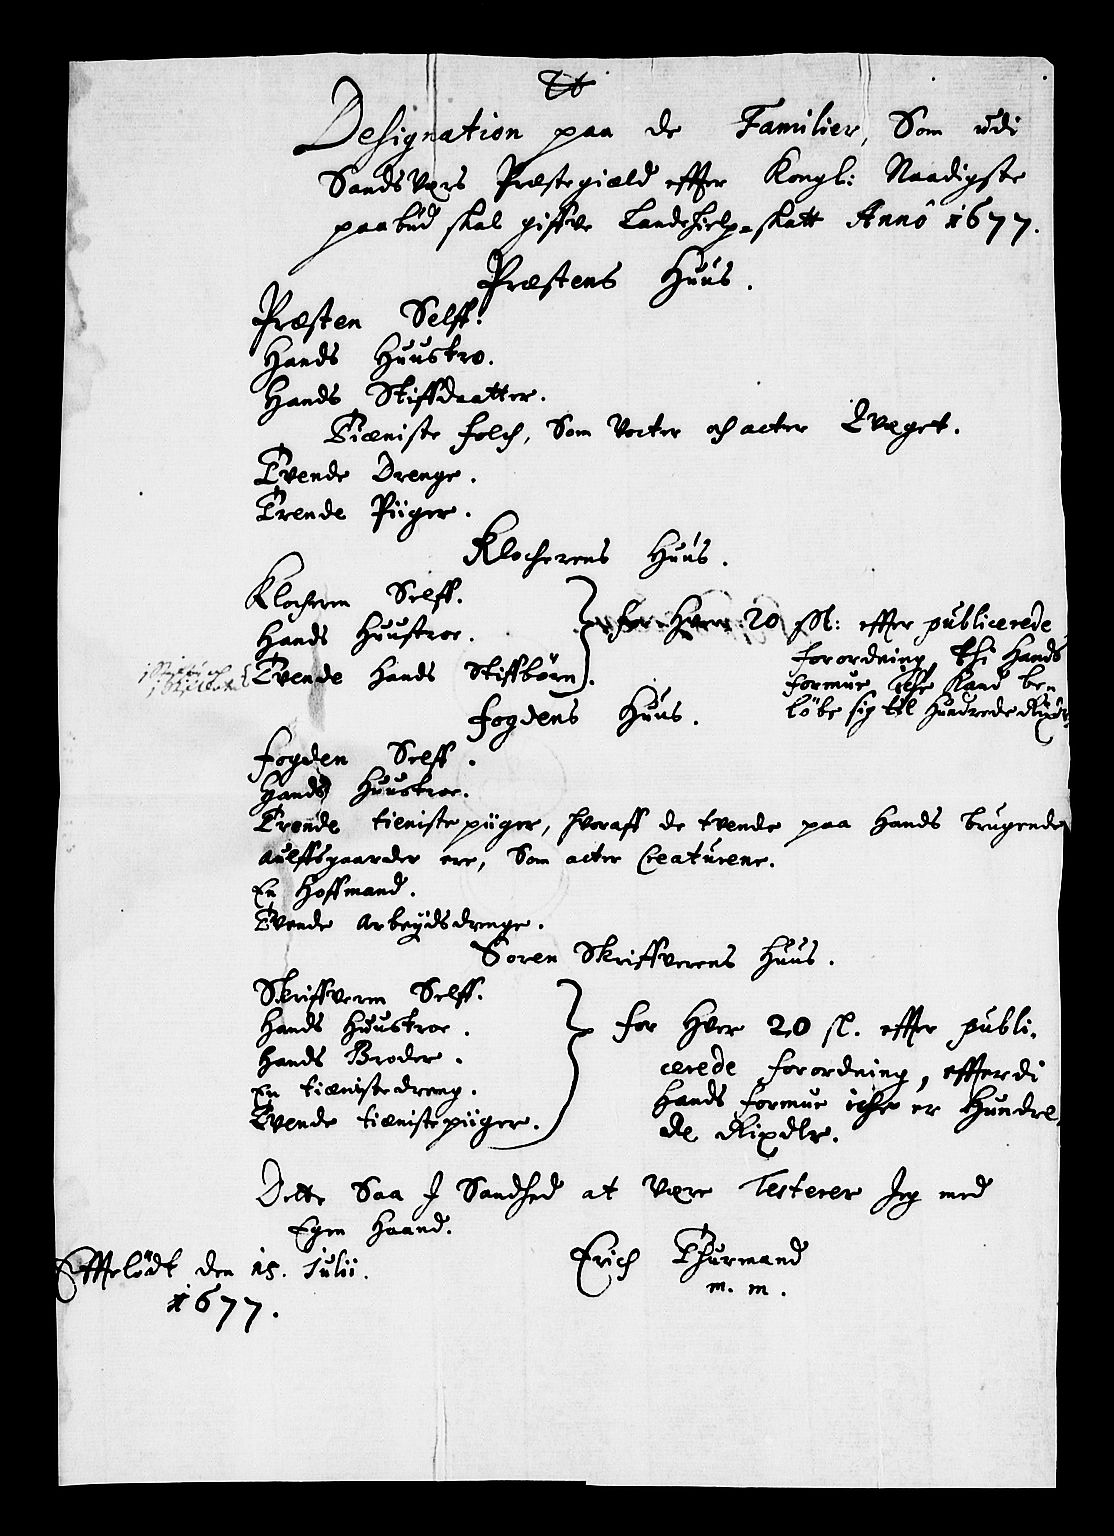 Designation paa de Familier, Som udi
Sandsværs Præstegiæld effter Kongl: Naadigste
paabud skal giffve Landehielp-skatt Annô 1677.
Præstens Huus.
Præsten Selff.
Hands Huustro.
Hands Stiffdaatter.
Tiæniste folch, Som Vocter och acter Qvæget.
Tvende Drenge.
Trende Piiger.
Klocherens Huus.
Klocheren Selff.
Hands Huustroe.
Tvende Hands Stiffbørn.
for Hver 20 sk: effter publicerede
forordning, thi Hands
formue iche Kand be-
løbe sig til Hundrede Rixdr.
Fogdens Huus.
Fogden Selff.
Hands Huustroe.
Trende tieniste piiger, hvoraff de tvende paa Hands brugende
aulffsgaarder ere, Som acter Creaturene.
En Hoffmand.
Tvende Arbeydsdrenge.
Soren Skriffverens Huus.
Skriffveren Selff.
Hands Huustroe.
Hands Broder.
En tiænistedreng.
Tvende tiænistepiiger.
for Hver 20 sl. effter publi-
cerede forordning, effterdi
Hands formue iche er Hundre-
de Rixdlr.
Dette Saa I Sandhed at Være Testerer Jeg med
Egen Haand.
Efftelødt den 15. Julii.
1677.
Erich Thurmand
m. m.